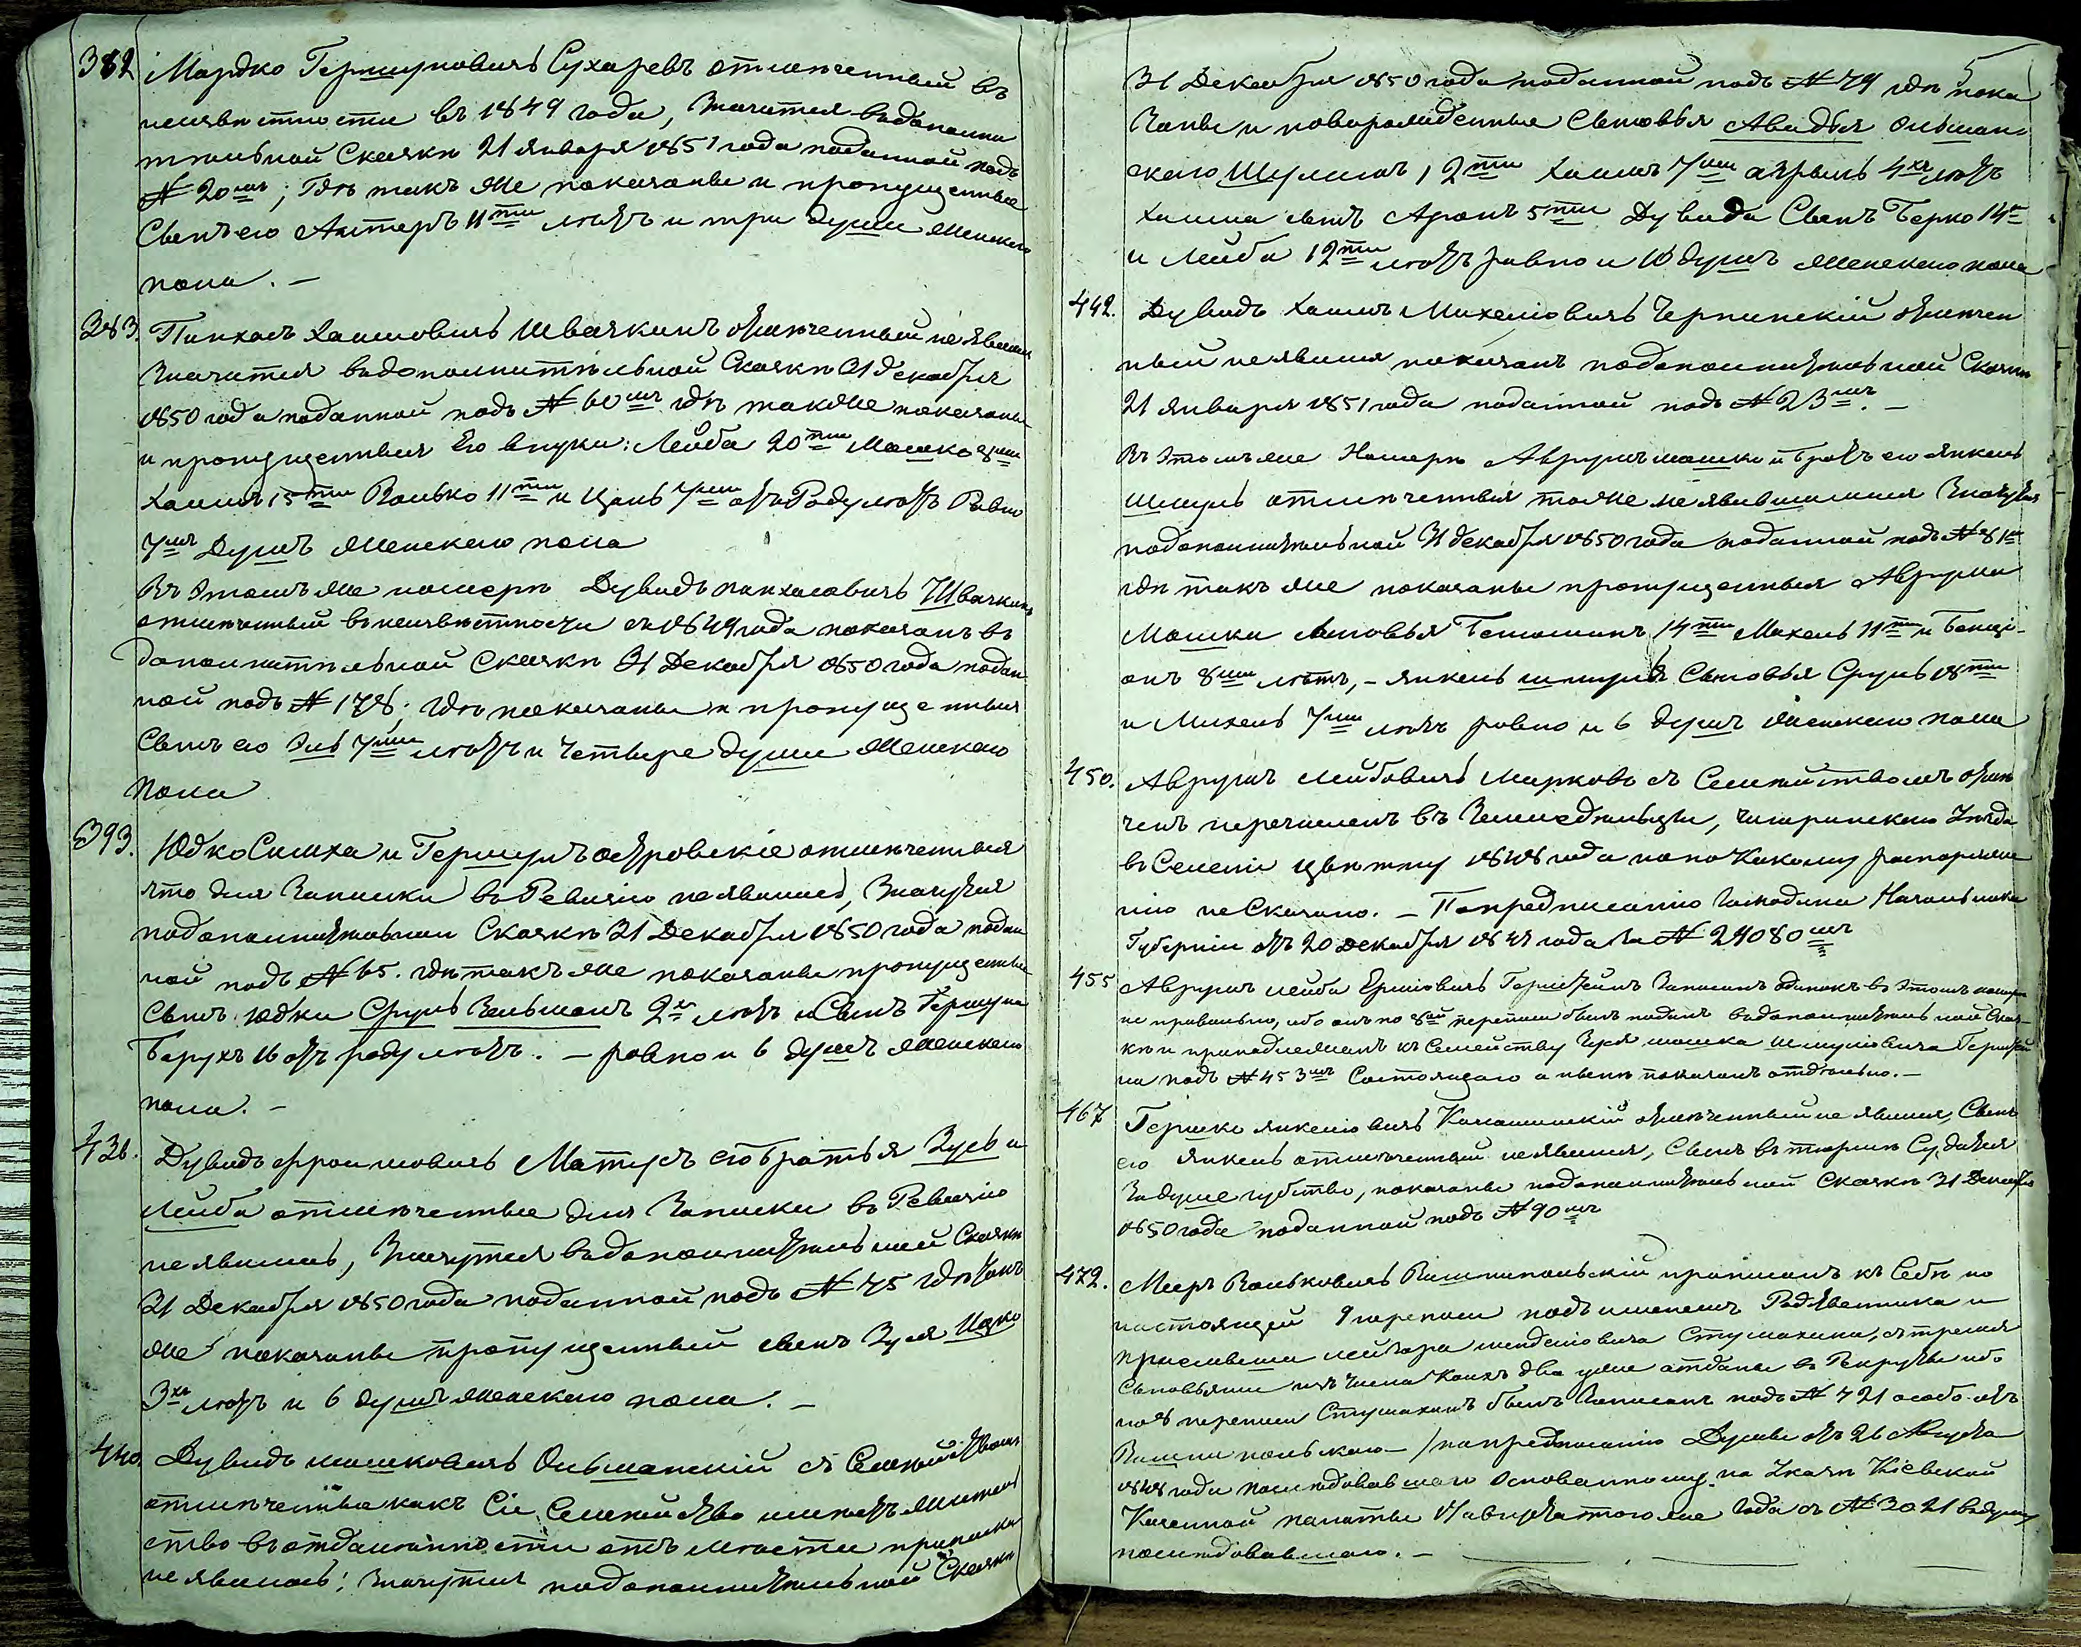 382 Мордко Гершуновичъ Сухаревъ отмеченный въ
неизвѣстности въ 1849 году, значится въ дополни
тельной Сказкѣ 21 Января 1851 года поданной подъ
№ 20мъ; Гдѣ такъ же показаны и пропущенные
Сынъ его Ахтеръ 11ти лѣтъ и три души женскаго
пола. –
383. Пинхасъ Хаимовичъ Швачкинъ отмѣченный не явился
Значится въ дополнительной Сказкѣ 31 декабря
1850 года поданной подъ № 60мъ гдѣ также показаны
и пропущенныя Его внуки: Лейба 20ти Мошко 8ми
Хаимъ 15ти Волько 11ти и Цаль 7ми отъ Роду лѣтъ Равно
7мъ Душъ Женскаго пола
Въ этомъ же номерѣ Дувидъ Пинхасовичъ Швачкинъ
отмеченный въ неизвѣстности съ 1849 года показанъ въ
дополнительной Сказкѣ 31 Декабря 1850 года подан
ной подъ № 178; гдѣ показаны и пропущенныя
Сынъ его Эль 7ми лѣтъ и четыре души Женскаго
пола
393. Юдко Симха и Гершунъ Островскіе отмѣченныя
что для Записки въ Ревизію не явились, Значутся
по дополнительной Сказкѣ 31 Декабря 1850 года подан
ной подъ № 65. гдѣ такъ же показаны пропущенные
Сынъ Юдки Сруль Зельманъ 2хъ лѣтъ и Сынъ Гершуна
Борухъ 16 отъ роду лѣтъ. – равно и 6 душъ Женскаго
пола. –
436. Дувидъ Фроимовичъ Матусъ его братья Зусь и
Лейба отмѣченные для Записки въ Ревизію
не явились, Значутся въ дополнительной Сказкѣ
31 Декабря 1850 года поданной подъ № 75 гдѣ такъ
же показаны пропущенный сынъ Зуся Ицко
3хъ лѣтъ и 6 душъ женскаго пола. –
440. Дувидъ Мошковичъ Ольшанскій съ Семействомъ
отмѣчены какъ Сіе Семейство имѣетъ Житель
ство въ отдаленности отъ мѣста приписки
не явилось; значутся по дополнительной Сказкѣ
5
31 Декабря 1850 года поданной подъ № 79 гдѣ пока
Заны и новорожденныя Сыновья Авадья Ольшан-
скаго Шулимъ 12ти Хаимъ 7ми Азрыль 4хъ лѣтъ
Хаима сынъ Аронъ 5ти Дувида Сынъ Берко 14
и Лейба 12ти лѣтъ равно и 10 душъ Женскаго пола
442. Дувидъ Хаимъ Михелiовичъ Чернинскій отмѣчен
ный не явился показанъ по дополнительной Сказкѣ
21 Января 1851 года поданной подъ № 23мъ. –
Въ этомъ же Номерѣ Аврумъ Мошко и братъ его Янкель
Шмуль отмѣченныя тоже не явившимися Значутся
по дополнительной 31 декабря 1850 года поданной подъ № 81м
гдѣ такъ же показаны пропущенныя Аврума
Мошки сыновья Беньоминъ 14ти Михель 11ти и Бенці-
онъ 8ми лѣтъ, – Янкель Шмуля Сыновья Сруль 18ти
и Михель 7ми лѣтъ равно и 6 душъ Женскаго пола
450. Аврумъ Лейбовичъ Мирковъ съ Семействомъ отмѣ
ченъ перечисленъ въ Земледѣльцы, Чигиринскаго Уѣзда
въ Селеніи Цвѣтну 1848 года но по Какому распоряже
нію не Сказано. – По предписанію Господина Начальника
Губерніи отъ 20 декабря 1848 года за № 24080мъ
455 Аврумъ Лейба Ершовичъ Герштейнъ Записанъ одинокъ въ этомъ номерѣ
не правильно, ибо онъ по 8ой переписи былъ поданъ въ дополнительной Сказ-
кѣ и принадлежитъ къ Семейству Гуся Мошка Шмуловича Герштей
на подъ № 453мъ Состоящаго а нынѣ показанъ отдѣльно. –
467 Гершко Янкелiовичъ Каташинскій отмѣченный не явился, Сынъ
его Янкель отмѣченный не явился, Сынъ въ тюрьмѣ Судится
За душегубство, показаны по дополнительной Сказкѣ 31 Декабря
1850 года поданной подъ № 90мъ
472. Мееръ Вольковичъ Вишнипольскій приписалъ къ Себѣ по
настоящей 9 переписи подъ именемъ Родственника и
приемыша Лейзора Менделiовича Стушахина, съ тремя
Сыновьями изъ числа коихъ два уже отданы въ Рекруты ибо
по 8 переписи Стушахинъ былъ Записанъ подъ № 421 особо отъ
Вишнипольскаго – /по предписанію Думы отъ 26 Августа
1848 года последовавшаго Основанному на Указѣ Кіевской
Казенной палаты 17 августа того же года съ № 3021 въ думу
последовавшаго. –